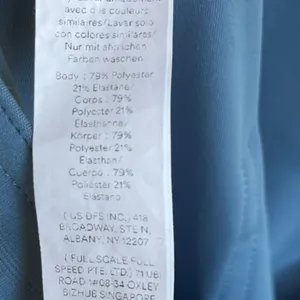 avec des couleurs
similaires/Lavar solo
con colores similares/
Nur mit ähnlichen
Farben waschen
Body : 79% Polyester
21% Elastane/
Corps : 79%
Polyester 21%
Elasthanne/
Körper : 79%
Polyester 21%
Elasthan/
Cuerpo : 79%
Poliéster 21%
Elastano
[ US DFS INC.] 418
BROADWAY, STE N,
ALBANY, NY 12207
[ FULL SCALE FULL
SPEED PTE. LTD.] 71 UBI
ROAD 1 #08-34 OXLEY
BIZHUB SINGAPORE